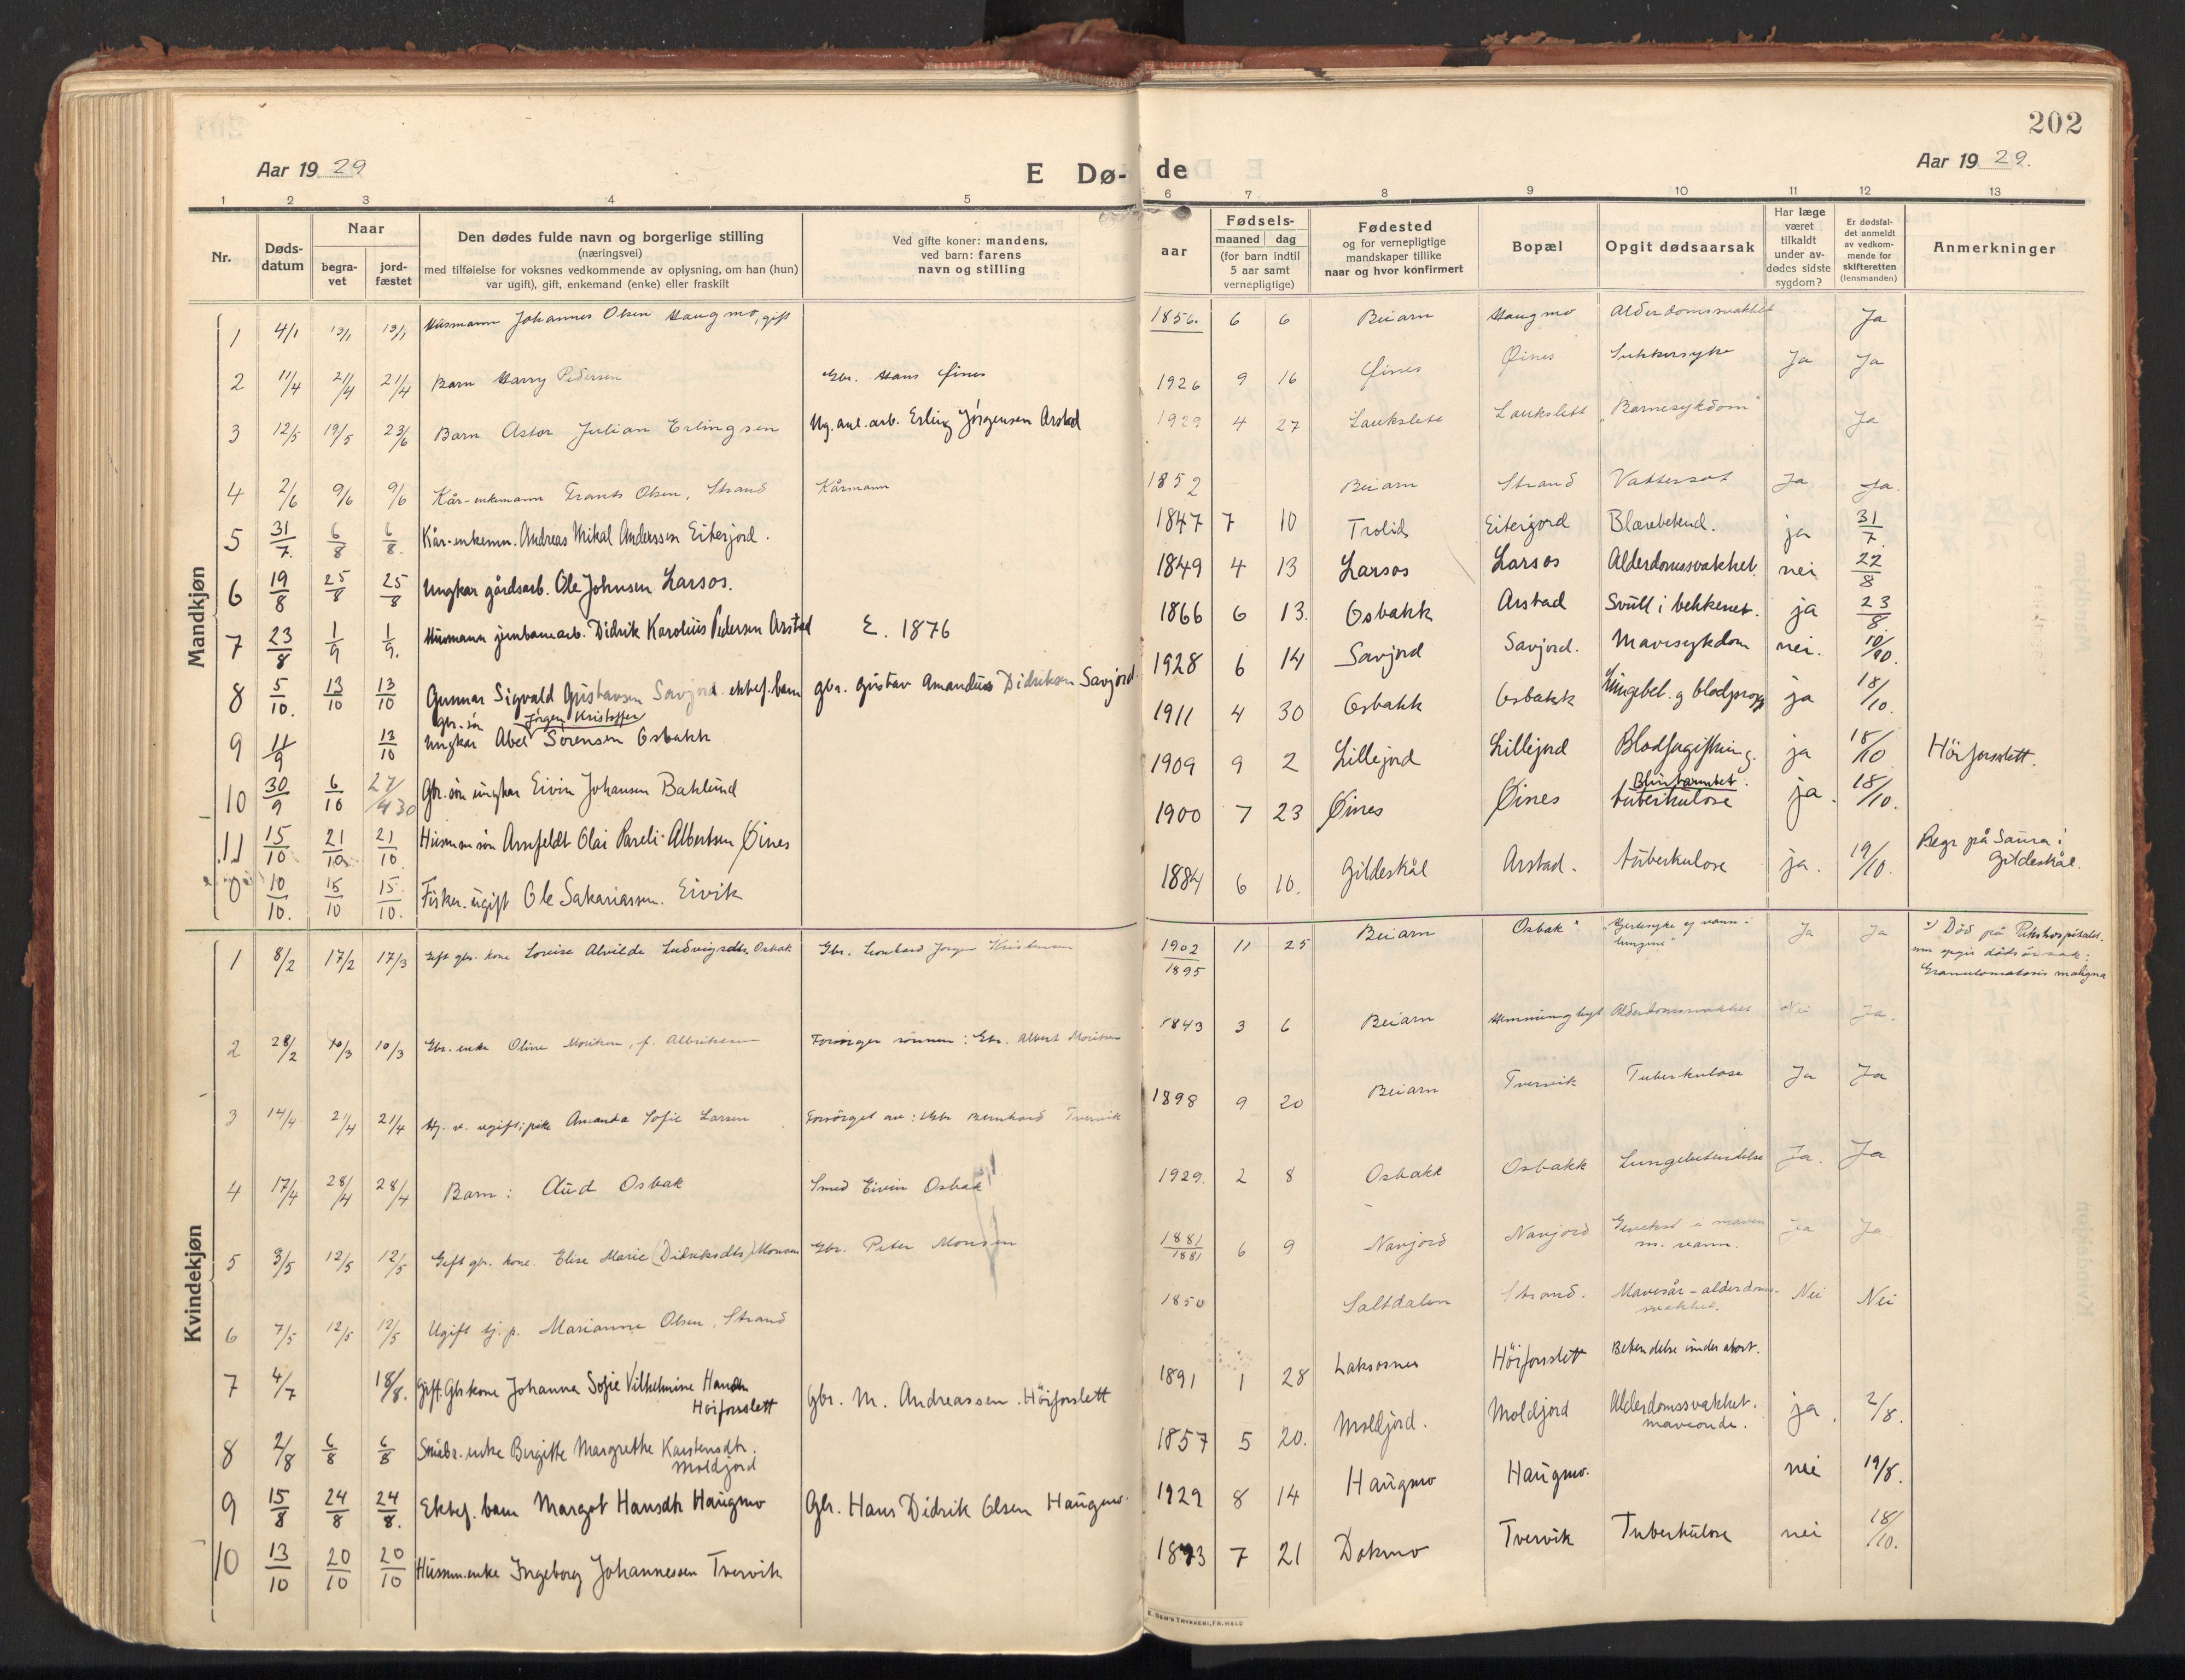 202
Aar 1929
E Dø-
de
Aar 1929.
1 2 3 4 5 6 7 8 9 10 11 12 13
Nr.
Døds-
datum
Naar
begra-
vet
jord-
fæstet
Den dødes fulde navn og borgerlige stilling
(næringsvei)
med tilføielse for voksnes vedkommende av oplysning, om han (hun)
var ugift), gift, enkemand (enke) eller fraskilt
Ved gifte koner: mandens,
ved barn: farens
navn og stilling
aar
Fødsels-
maaned dag
(for barn indtil
5 aar samt
vernepligtige)
Fødested
og for vernepligtige
mandskaper tillike
naar og hvor konfirmert
Bopæl
Opgit dødsaarsak
Har læge
været
tilkaldt
under av-
dødes sidste
sygdom?
Er dødsfal-
det anmeldt
av vedkom-
mende for
skifteretten
(lensmanden)
Anmerkninger
Mandkjøn
1 4/1 13/1 13/1 Husmann Johannes Olsen Haugmo, gift 1856. 6 6 Beiarn Haugmo Alderdomssvakhet Ja
2 11/4 21/4 21/4 Barn Harry Pedersen Gbr. Hans Øines 1926 9 16 Øines Øines Sukkersyke Ja Ja
3 12/5 19/5 23/6 Barn Astor Julian Erlingsen Ug. anl. arb. Erling Jörgensen Arstad 1929 4 27 Laukslett Laukslett "Barnesykdom" Ja
4 2/6 9/6 9/6 Kår-enkemann Frants Olsen, Strand Kårmann 1852 Beiarn Strand Vattersot Ja Ja.
5 31/7. 6/8 6/8. Kår-enkemn. Andreas Mikal Anderssen Eiterjord. 1847 7 10 Trolid Eiterjord Blærebetend. ja 31/7.
6 19/8 25/8 25/8 Ungkar gårdsarb. Ole Johnsen Larsos. 1849 4 13 Larsos Larsos Alderdomssvakhet. nei 22/8
7 23/8 1/9 1/9. Husmann jernbanearb. Didrik Karolius Pedersen Arstad E. 1876 1866 6 13. Osbakk Arstad Svull i bekkenet. ja 23/8.
8 5/10. 13/10 13/10 Gunnar Sigvald Gustavsen Savjord. ektef. barn gbr. Gustav Amandus Didriksen Savjord. 1928 6 14 Savjord Savjord. Mavesykdom nei. 10/10.
gbr. sön Jörgen Kristoffer
9 11/9 13/10 Ungkar Abel Sörensen Osbakk 1911 4 30 Osbakk Osbakk Lungebet. og blodpropp ja 18/10.
10 30/9 6/10 27/4 30 Gbr. sön ungkar Eivin Johansen Baklund 1909 9 2 Lillejord Lillejord Blodforgiftning. ja 18/10 Höiforsslett.
11 15/10 21/10 21/10. Husm. sön Arnfeldt Olai Pareli Albertsen Øines 1900 7 23 Øines Øines Blindtarmbet. tuberkulose ja. 18/10.
0 10/10. 15/10 15/10. Fisker. ugift Ole Sakariassen. Eivik 1884 6 10. Gildeskål Arstad. tuberkulose ja. 19/10. Begr på Saura i
Gildeskål.
Kvindekjøn
1 8/2 17/2 17/3 Gift gbr. kone Lovise Alvilde Ludvigsdtr. Osbak Gbr. Leonhard Jörgen Kristensen 1902/1895 11 25 Beiarn Osbak "Hjertesyke og vann i
lungene" Ja Ja x) Död på Rikshospitalet.
som opgir dødsårsak:
Granulomatosis maligna
2 28/2 10/3 10/3 Gbr. enke Oline Moritsen, f. Albriktsen Forsörger sönnen: Gbr. Albert Moritsen 1843 3 6 Beiarn Alderdomssvakhet Nei Ja.
3 14/4 21/4 21/4 ugift; pike Amanda Sofie Larsen Forsörget av: Gbr Bernhard Tvervik 1898 9 20 Beiarn Tvervik Tuberkulose Ja Ja
4 17/4 28/4 28/4 Barn: Aud Osbak Smed Eivin Osbak 1929. 2 8 Osbakk Osbakk Lungebetendelse Ja. Ja
5 3/5 12/5 12/5 Gift gbr. kone. Elise Marie (Didriksdtr) Monsen Gbr. Peter Monsen 1881/1881 6 9 Navjord Navjord Gevekst i maven
m. vann. Ja Ja
6 7/5 12/5 12/5 Ugift tj. p. Marianne Olsen, Strand 1850 Saltdalen Strand. Mavesår - alderdoms-
svakhet. Nei Nei
7 4/7 18/8. Gift. Gbrkone Johanna Sofie Vilhelmine Hansen
Höiforsslett Gbr. M. Andreassen. Höiforslett 1891 1 28 Laksosnes Höiforsslett Betendelse under abort.
8 2/8 6/8 6/8 Småbr. enke Birgitte Margrethe Karstensdtr.
Moldjord 1857 5 20. Moldjord. Moldjord Alderdomssvakhet.
maveonde. ja. 2/8.
9 15/8 24/8 24/8. Ektef. barn Margot Hansdtr Haugmo Gbr. Hans Didrik Olsen Haugmo. 1929 8 14 Haugmo Haugmo. nei 19/8.
10 13/10 20/10 20/10 Husm. enke Ingeborg Johannessen Tvervik 7 21 Dokmo Tvervik Tuberkulose nei 18/10.
E. SEM'S TRYKKERI, FR.HALD